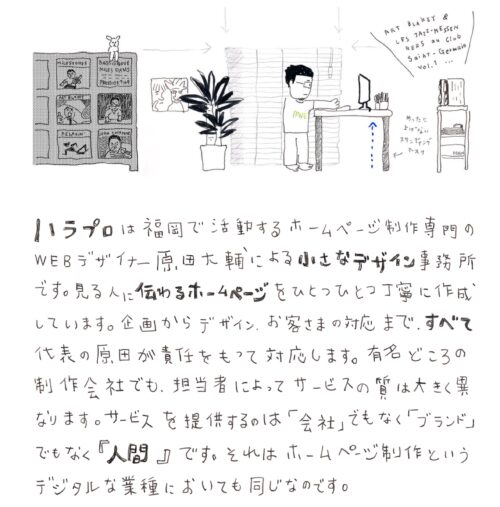 ART BLAKEY &
LES JAZZ-MESSEN
GERS au CLUB
SAINT-GERMAIN
VOL.1 ...
MILESTONES
BAGS GROOVE
MILES DAVIS
PRESTIGE
ART BLAKEY
めったに
上げない
スタンディング
デスク
ハラプロは福岡で活動するホームページ制作専門の
WEBデザイナー原田大輔による小さなデザイン事務所
です。見る人に伝わるホームページをひとつひとつ丁寧に作成
しています。企画からデザイン、お客さまの対応まで、すべて
代表の原田が責任をもって対応します。有名どころの
制作会社でも、担当者によってサービスの質は大きく異
なります。サービスを提供するのは「会社」でもなく「ブランド」
でもなく『人間』です。それはホームページ制作という
デジタルな業種においても同じなのです。